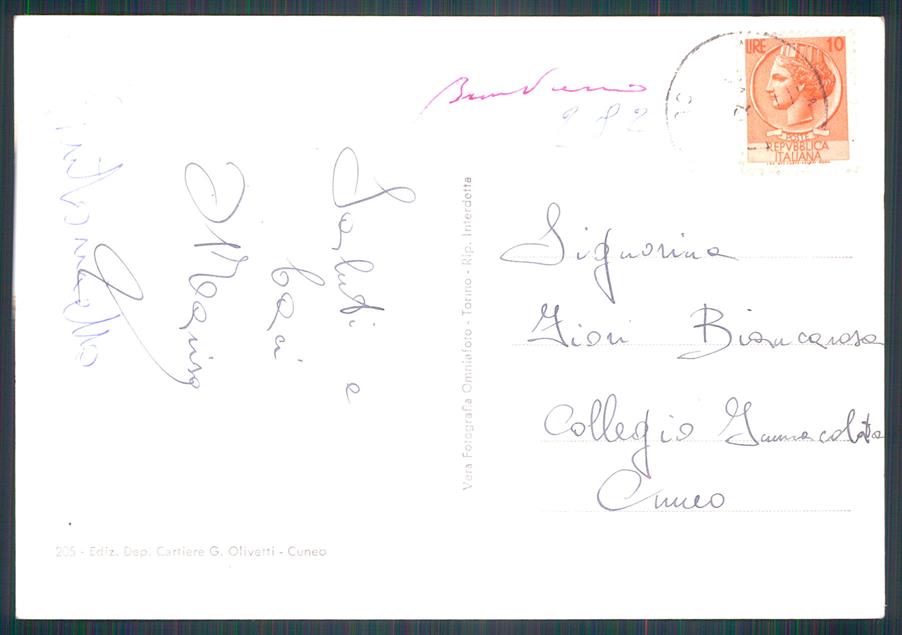 LIRE 10
POSTE
REPVBBLICA
ITALIANA
Saluti e
baci
Marisa
Vera Fotografia Omniafoto - Torino - Rip. Interdetta
Signorina
Fiori Biancarosa
Collegio Immacolata
Cuneo
205 - Ediz. Dep. Cartiere G. Olivetti - Cuneo